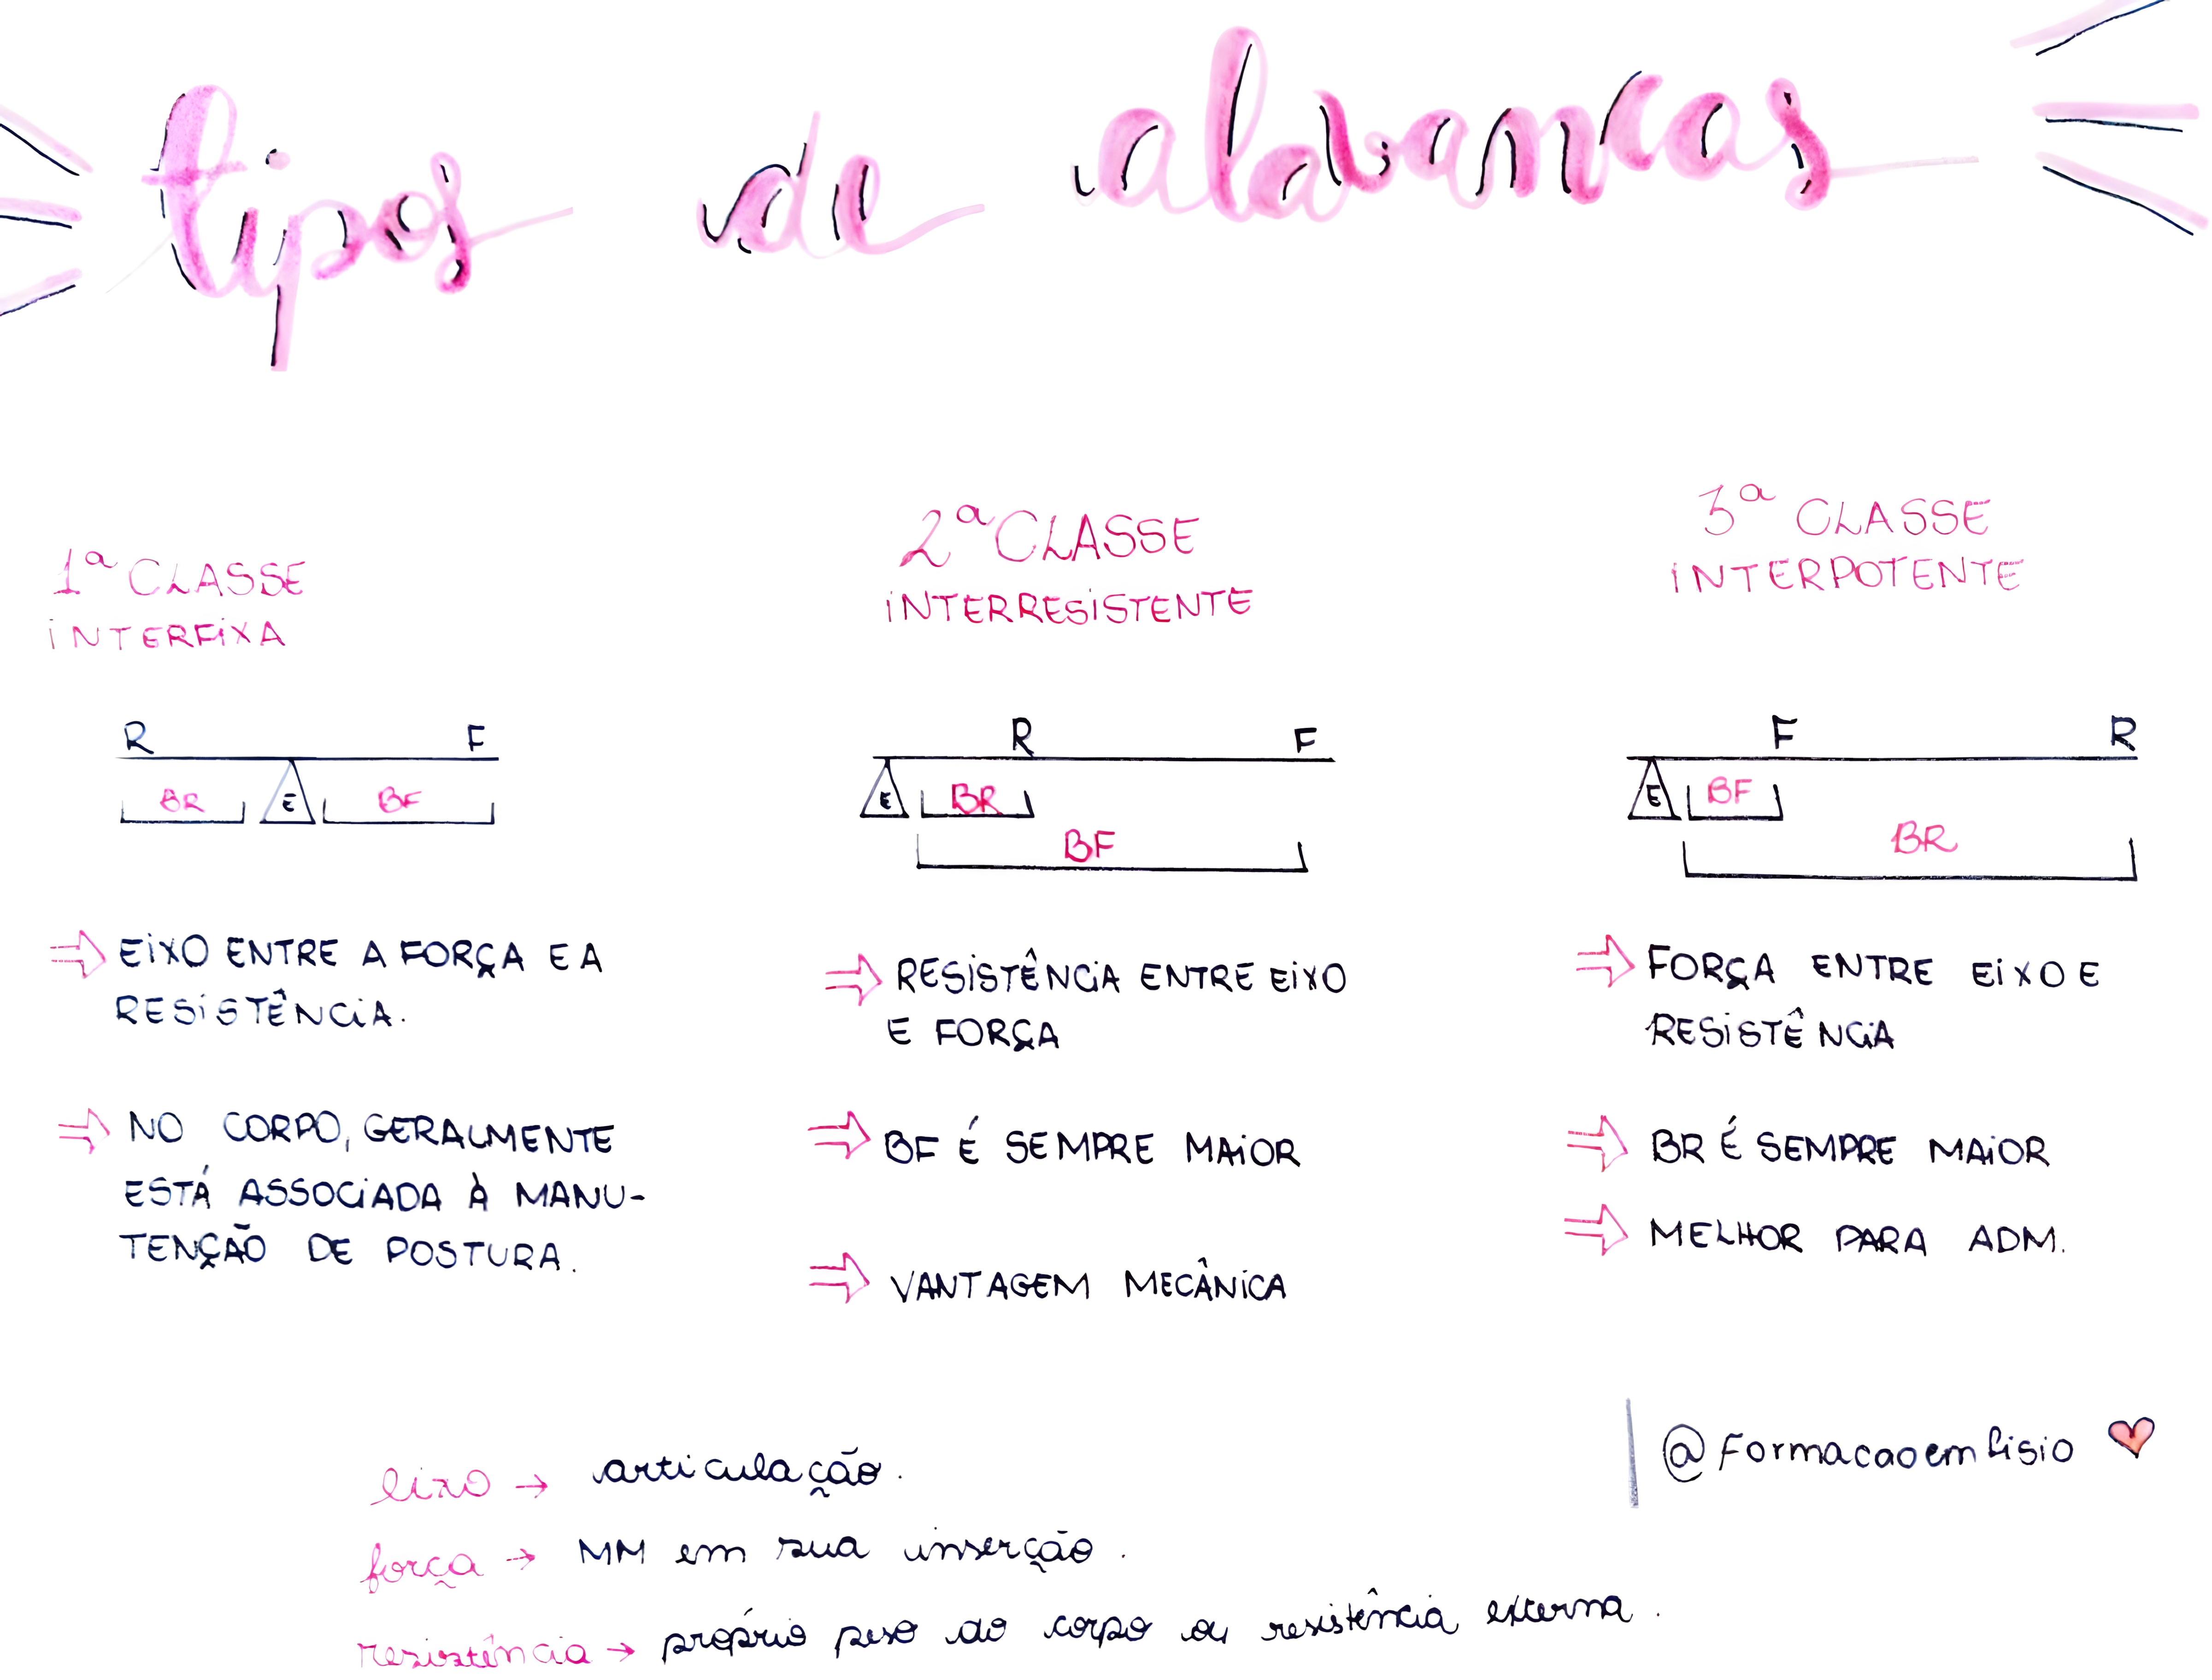 tipos de alavancas
1ª CLASSE
INTERFIXA
R F
BR E BF
EIXO ENTRE A FORÇA E A
RESISTÊNCIA.
NO CORPO, GERALMENTE
ESTÁ ASSOCIADA À MANU-
TENÇÃO DE POSTURA.
2ª CLASSE
INTERRESISTENTE
R F
E BR
BF
RESISTÊNCIA ENTRE EIXO
E FORÇA
BF É SEMPRE MAIOR
VANTAGEM MECÂNICA
3ª CLASSE
INTERPOTENTE
F R
E BF
BR
FORÇA ENTRE EIXO E
RESISTÊNCIA
BR É SEMPRE MAIOR
MELHOR PARA ADM.
eixo → articulação.
força → MM em sua inserção.
resistência → próprio peso do corpo ou resistência externa.
@Formacaoemfisio